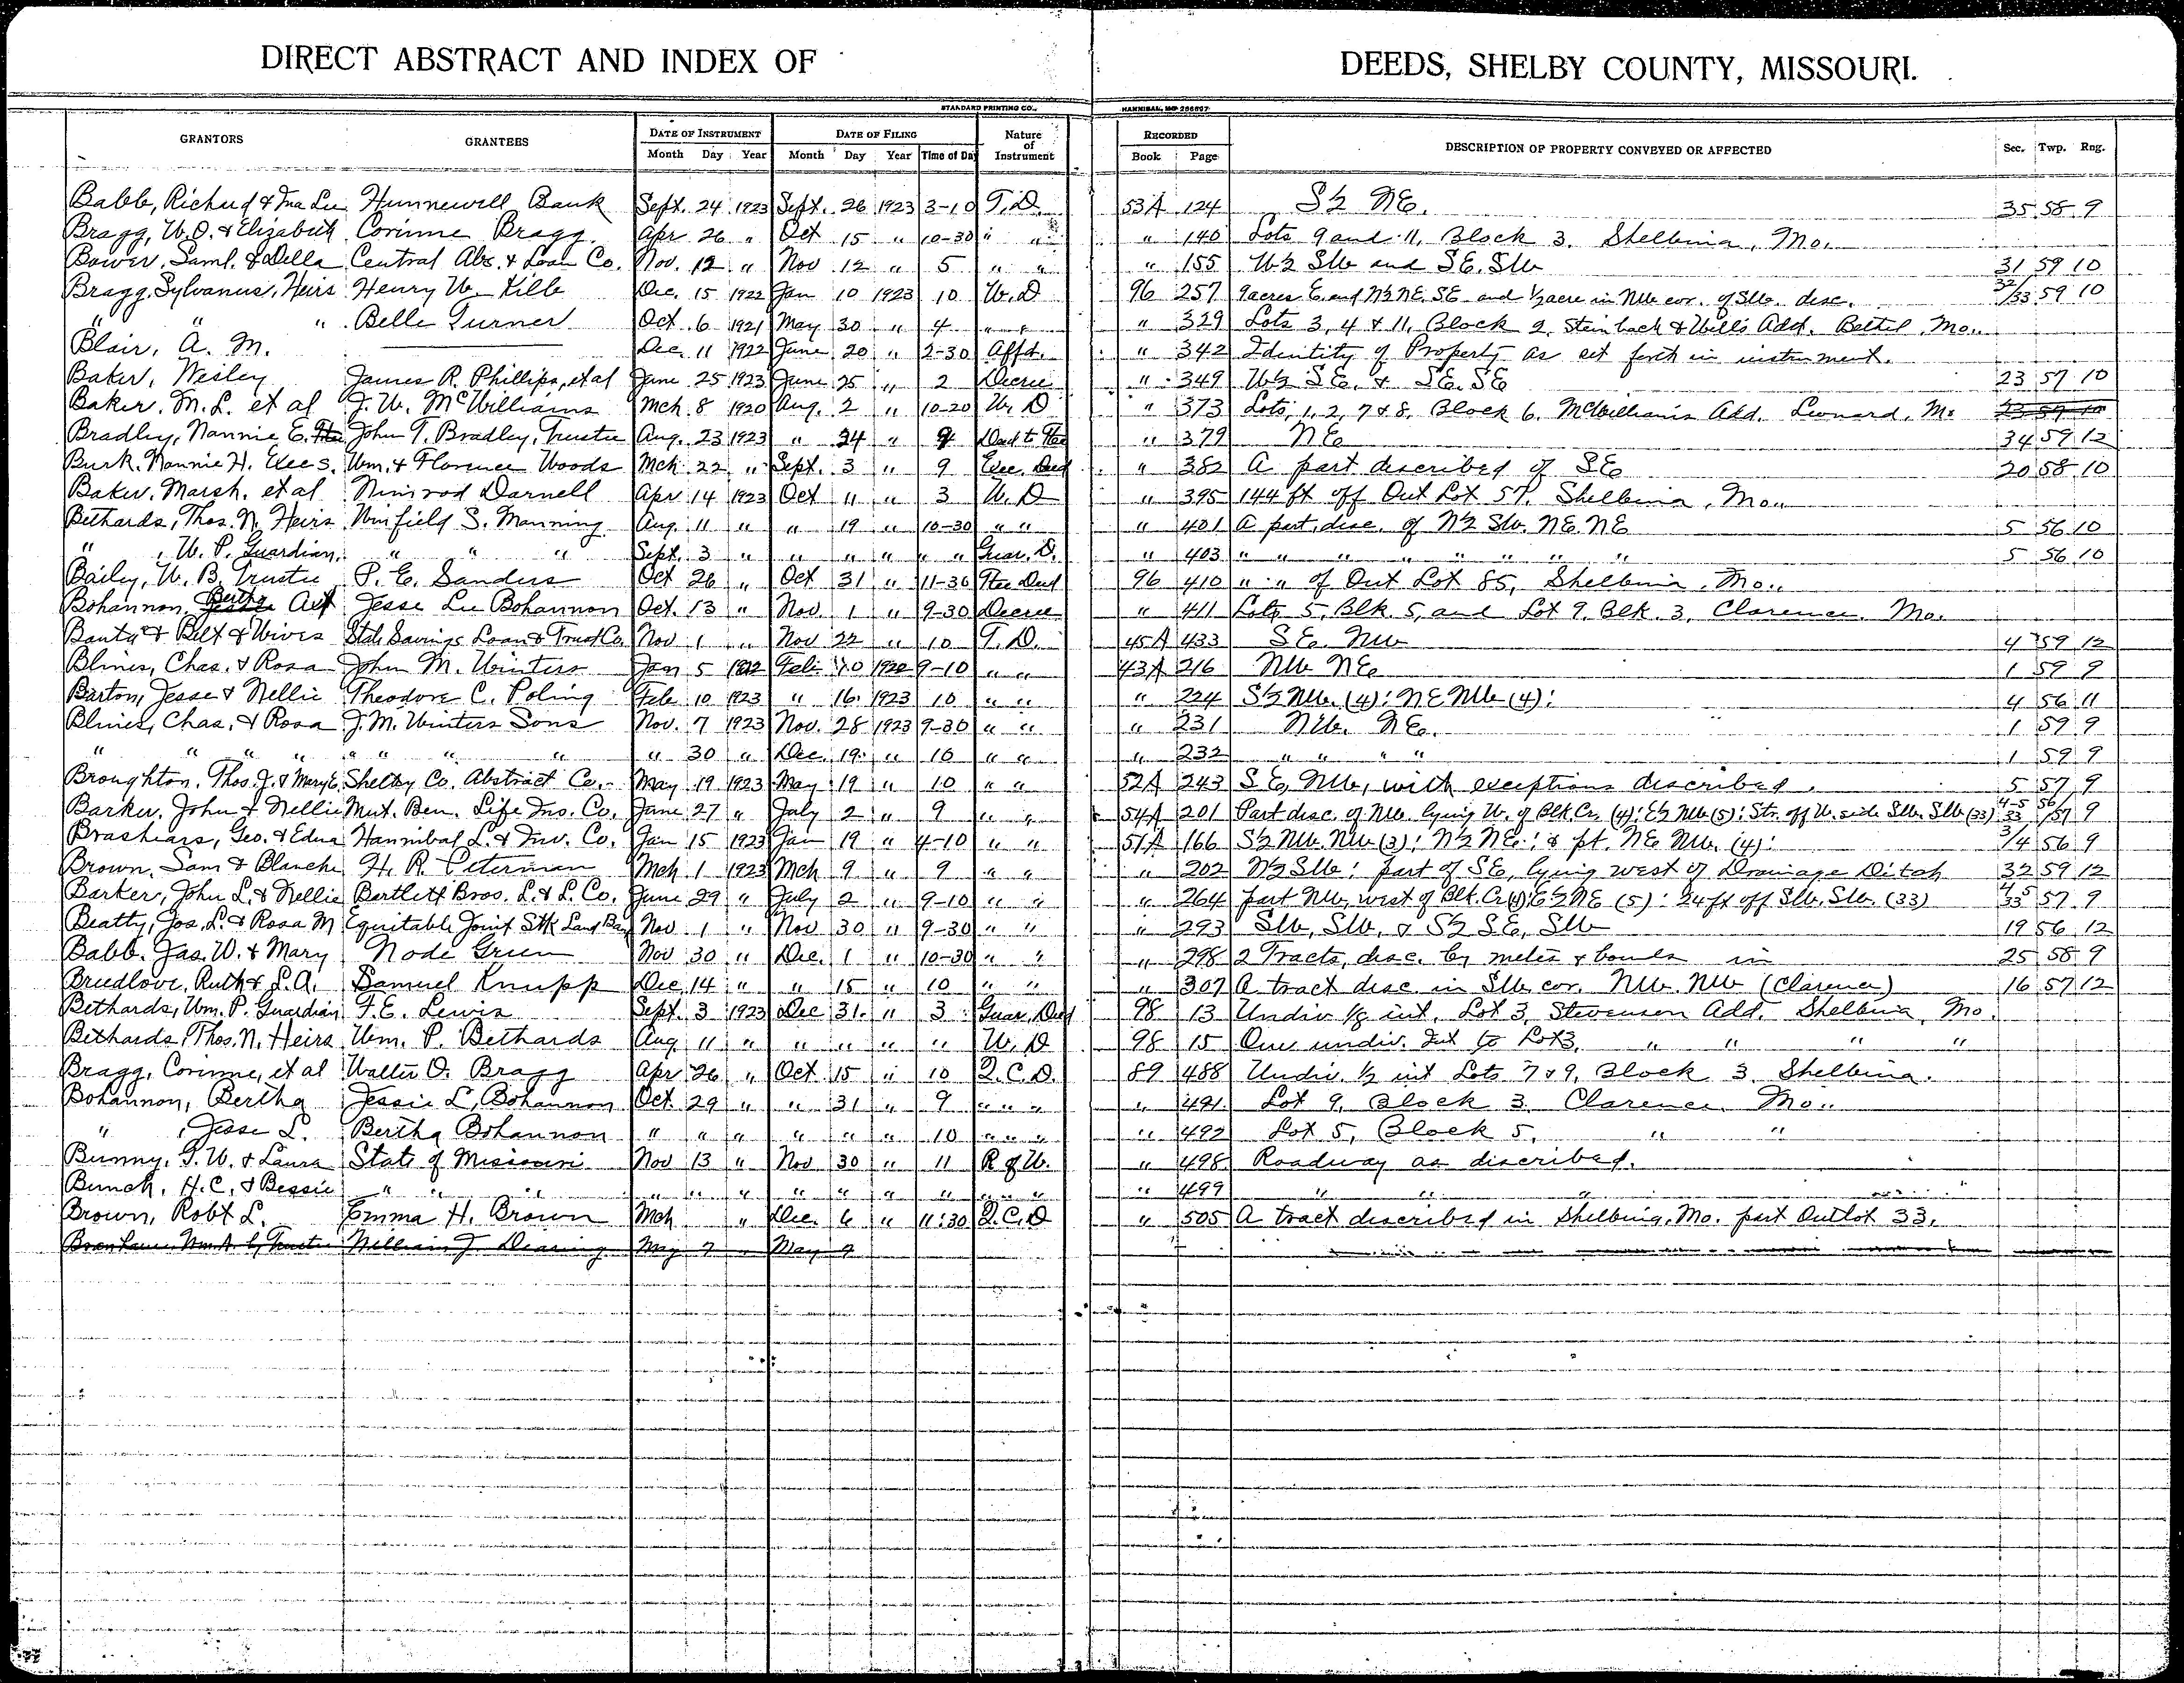 DIRECT ABSTRACT AND INDEX OF DEEDS, SHELBY COUNTY, MISSOURI.
STANDARD PRINTING CO., HANNIBAL, MO
GRANTORS GRANTEES DATE OF INSTRUMENT DATE OF FILING Nature of Instrument RECORDED DESCRIPTION OF PROPERTY CONVEYED OR AFFECTED Sec. Twp. Rng.
Month Day Year Month Day Year Time of Day Book Page
Babb, Richard & Ina Lee Hunnewell Bank Sept. 24 1923 Sept. 26 1923 3-10 T.D. 53A 124 S½ NE. 35 58 9
Bragg, W.O. & Elizabeth Corinne Bragg Apr 26 " Oct 15 " 10-30 " " " 140 Lots 9 and 11, Block 3. Shelbina, Mo.
Bower, Saml. & Della Central Abs. & Loan Co. Nov. 12 " Nov 12 " 5 " " " 155 W½ SW and SE. SW 31 59 10
Bragg, Sylvanus, Heirs Henry W. Kille Dec. 15 1922 Jan 10 1923 10 W.D 96 257 9 acres E. and N½ NE. SE and ½ acre in NW cor. of SW. desc. 32/33 59 10
" " " Belle Turner Oct. 6 1921 May 30 " 4 " " " 329 Lots 3, 4 & 11, Block 2, Steinbach & Will's Add. Bethel, Mo.
Blair, A. M. Dec. 11 1922 June 20 " 2-30 Affd. " 342 Identity of Property as set forth in instrument.
Baker, Wesley James R. Phillips, et al June 25 1923 June 25 " 2 Decree " 349 W½ SE. & SE. SE 23 57 10
Baker, M.L. et al J. W. McWilliams Mch 8 1920 Aug. 2 " 10-20 W. D " 373 Lots, 1, 2, 7 & 8, Block 6. McWilliams Add. Leonard, Mo
Bradley, Nannie E. John T. Bradley, Trustee Aug. 23 1923 " 24 " 9 Deed to Tee " 379 NE 34 59 12
Burk, Nannie H. Exec's. Wm. & Florence Woods Mch 22 " Sept. 3 " 9 Exec. Deed " 382 A part described of SE 20 58 10
Baker, Marsh. et al Nimrod Darnell Apr 14 1923 Oct 11 " 3 W. D " 395 144 ft off Out Lot 57. Shelbina, Mo.
Bethards, Thos. N. Heirs Winfield S. Manning Aug. 11 " " 19 " 10-30 " " " 401 A part, desc. of N½ SW. NE. NE 5 56 10
" , W. P. Guardian. " " " Sept. 3 " " " " " " Guar. D. " 403 " " " " " " " " 5 56 10
Bailey, W. B. Trustee P. E. Sanders Oct 26 " Oct 31 " 11-30 Tee Deed 96 410 " " of Out Lot 85, Shelbina, Mo.
Bohannon, Bertha Jesse Lee Bohannon Oct. 13 " Nov. 1 " 9-30 Decree " 411 Lots 5, Blk. 5, and Lot 9, Blk. 3, Clarence, Mo.
Banty & Belt & Wives State Savings Loan & Trust Co. Nov 1 " Nov 22 " 10 T.D. 45A 433 SE. NW 4 59 12
Blines, Chas. & Rosa John M. Winters Jan 5 1922 Feb. 10 1922 9-10 " " 43A 216 NW NE 1 59 9
Barton, Jesse & Nellie Theodore C. Poling Feb 10 1923 " 16 1923 10 " " " 224 S½ NW. (4); NE NW (4); 4 56 11
Blines, Chas. & Rosa J.M. Winters Sons Nov. 7 1923 Nov. 28 1923 9-30 " " " 231 NW. NE. 1 59 9
" " " " " " " " " 30 " Dec. 19 " 10 " " " 232 " " " " 1 59 9
Broughton, Thos. J. & Mary E. Shelby Co. Abstract Co. May 19 1923 May 19 " 10 " " 52A 243 SE, NW, with exceptions described. 5 57 9
Barker, John & Nellie Mut. Ben. Life Ins. Co. June 27 " July 2 " 9 " " 54A 201 Part desc. of NW. lying W. of Blk. Cr. (4); E½ NW (5); Str. off W. side SW. SW (33) 4-5 33 56/57 9
Brashears, Geo. & Edna Hannibal L. & Inv. Co. Jan 15 1923 Jan 19 " 4-10 " " 51A 166 S½ NW. NW (3); N½ NE.; & pt. NE NW. (4); 3/4 56 9
Brown, Sam & Blanche H. R. Peterman Mch 1 1923 Mch 9 " 9 " " " 202 N½ SW; part of SE, lying west of Drainage Ditch 32 59 12
Barker, John L. & Nellie Bartlett Bros. L. & L. Co. June 29 " July 2 " 9-10 " " " 264 part NW, west of Blk. Cr (4); E½ NE (5): 24 ft off SW. SW. (33) 4 5 33 57 9
Beatty, Jos. L. & Rosa M Equitable Joint Stk Land Bank Nov 1 " Nov 30 " 9-30 " " " 293 SW, SW, & S½ SE, SW 19 56 12
Babb, Jas. W. & Mary Node Green Nov 30 " Dec. 1 " 10-30 " " " 298 2 Tracts, desc. by metes & bounds in 25 58 9
Breedlove, Ruth & L.A. Samuel Knupp Dec. 14 " " 15 " 10 " " " 307 A tract desc. in SW cor. NW. NW (Clarence) 16 57 12
Bethards, Wm. P. Guardian F. E. Lewis Sept. 3 1923 Dec 31 " 3 Guar. Deed 98 13 Undiv ⅛ int. Lot 3, Stevenson Add. Shelbina, Mo.
Bethards, Thos. N. Heirs Wm. P. Bethards Aug. 11 " " " " " W. D 98 15 Our undiv. Int to Lot 3, " " " "
Bragg, Corinne, et al Walter O. Bragg Apr 26 " Oct 15 " 10 Q.C.D. 89 488 Undiv. ½ int Lots 7 & 9, Block 3 Shelbina.
Bohannon, Bertha Jessie L. Bohannon Oct. 29 " " 31 " 9 " " " " 491 Lot 9, Block 3. Clarence, Mo.
" , Jesse L. Bertha Bohannon " " " " " " 10 " " " " 492 Lot 5, Block 5, " "
Bunny, T. W. & Laura State of Missouri Nov 13 " Nov 30 " 11 R of W. " 498 Roadway as discribed.
Bunch, H.C. & Bessie " " " " " " " " " " " " " " 499 " " " "
Brown, Robt L. Emma H. Brown Mch " Dec. 6 " 11:30 Q.C.D " 505 A tract described in Shelbina, Mo. part Outlot 33.
William J. Dearing May 7 May 9